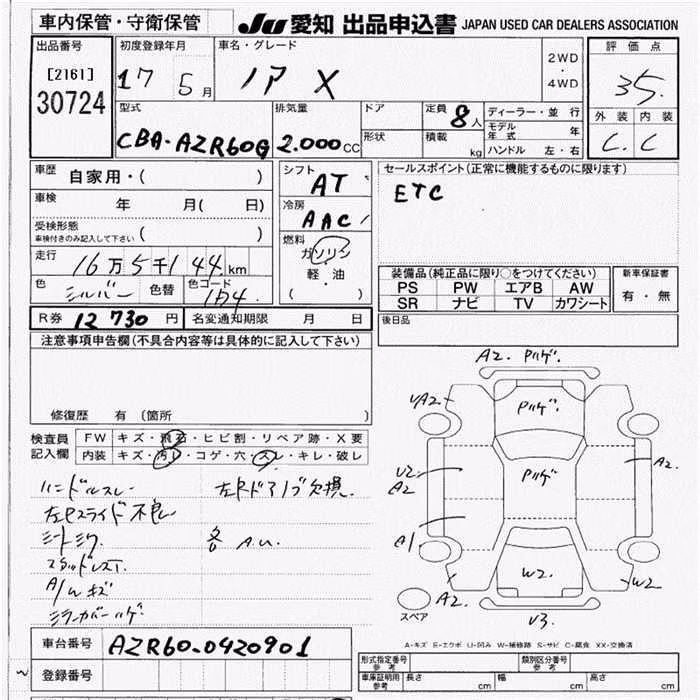 車内保管・守衛保管
JU 愛知 出品申込書 JAPAN USED CAR DEALERS ASSOCIATION
出品番号
[2161]
30724
初度登録年月
17 5月
車名・グレード
ノア X
2WD
・
4WD
評価点
3.5
外装 内装
C. C
型式
CBA-AZR60G
排気量
2.000CC
ドア
形状
定員 8人
積載 kg
ディーラー・並行
モデル年式 年
ハンドル 左・右
車歴
自家用・( )
車検
年 月( 日)
受検形態
(車検付きのみ記入して下さい)
走行
16万5千144km
色
シルバー
色替
色コード
1D4
シフト
AT
冷房
AAC
燃料
ガソリン
・
軽・油
( )
セールスポイント(正常に機能するものに限ります)
ETC
装備品(純正品に限り○をつけてください)
PS PW エアB AW
SR ナビ TV カワシート
新車保証書
有・無
R券 12730円
名変通知期限 月 日
後日品
注意事項申告欄(不具合内容等は具体的に記入して下さい)
修復歴 有(箇所 )
検査員記入欄
FW キズ・飛石・ヒビ割・リペア跡・X要
内装 キズ・汚レ・コゲ・穴・スレ・キレ・破レ
ハンドルスレ
左Rスライド不良
シートシワ
A/Wキズ
ミラーカバーハゲ
左Rドアノブ欠損
各 A.U.
A2. Pハゲ.
UA2.
Pハゲ.
U2
A2
Pハゲ
A2.
A1
A2.
W2.
W2
U3.
スペア
A-キズ E-エクボ U-凹み W-補修跡 S-サビ C-腐食 XX-交換済
車台番号 AZR60-0420901
登録番号
形式指定番号 参考
類別区分番号 参考
車庫証明用 参考 長さ cm 幅 cm 高さ cm